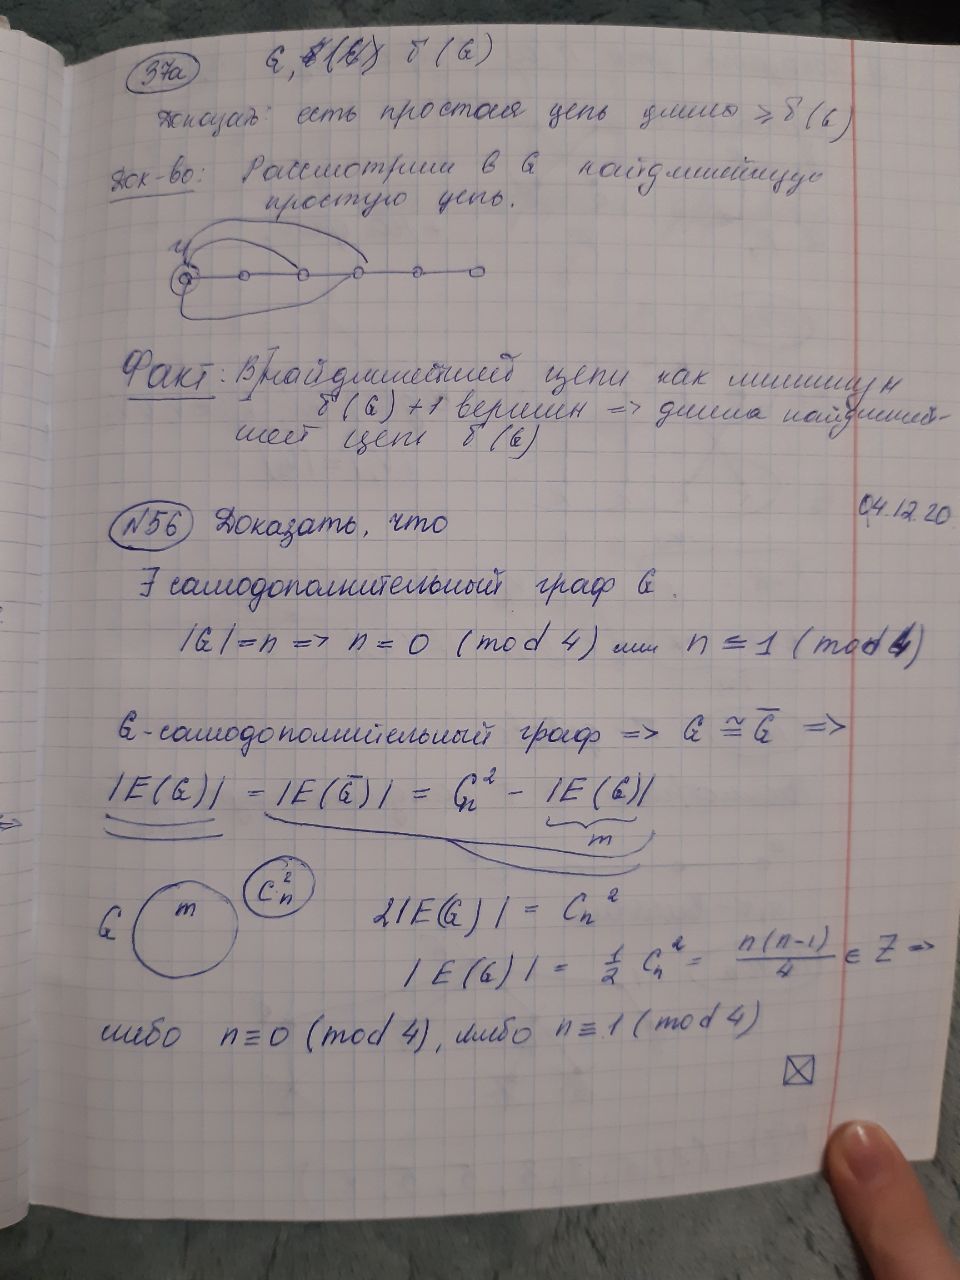 37а G, δ(G)
Доказать: есть простая цепь длины ≥ δ(G)
Док-во: Рассмотрим в G найдлиннейшую
простую цепь.
u
Факт: В найдлиннейшей цепи как минимум
δ(G)+1 вершин => длина найдлинней-
шей цепи δ(G)
04.12.20
№56 Доказать, что
∃ самодополнительный граф G.
|G|=n => n = 0 (mod 4) или n ≡ 1 (mod 4)
G-самодополнительный граф => G ≅ G̅ =>
|E(G)| = |E(G̅)| = Cₙ² - |E(G)|
m
G m Cₙ² 2|E(G)| = Cₙ²
|E(G)| = 1/2 Cₙ² = n(n-1)/4 ∈ Z =>
либо n≡0 (mod 4), либо n≡1 (mod 4)